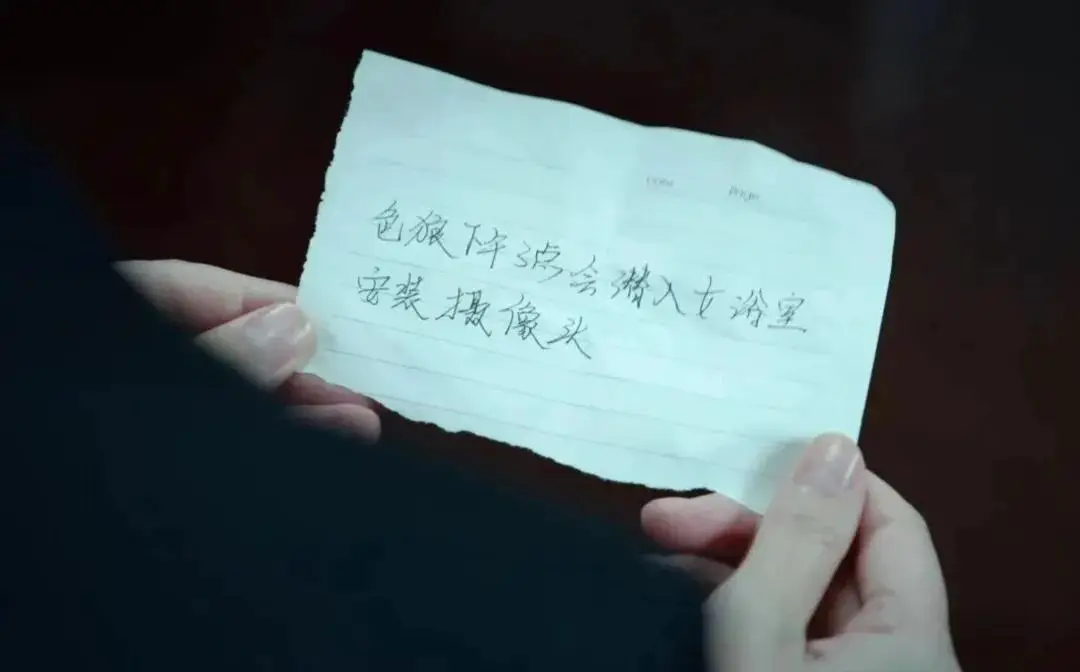 色狼下午3点会潜入女浴室
安装摄像头